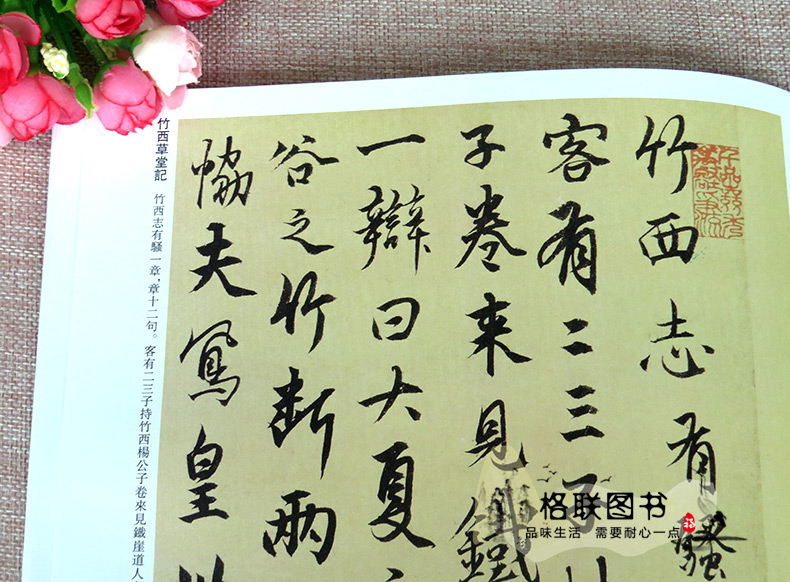 竹西志有騷
客有二三子
子卷来見鐵
一辯曰大夏
谷之竹断兩
恊夫鳳皇
竹西草堂記 竹西志有騷一章，章十二句。客有二三子持竹西楊公子卷來見鐵崖道人
格联图书
品味生活 需要耐心一点